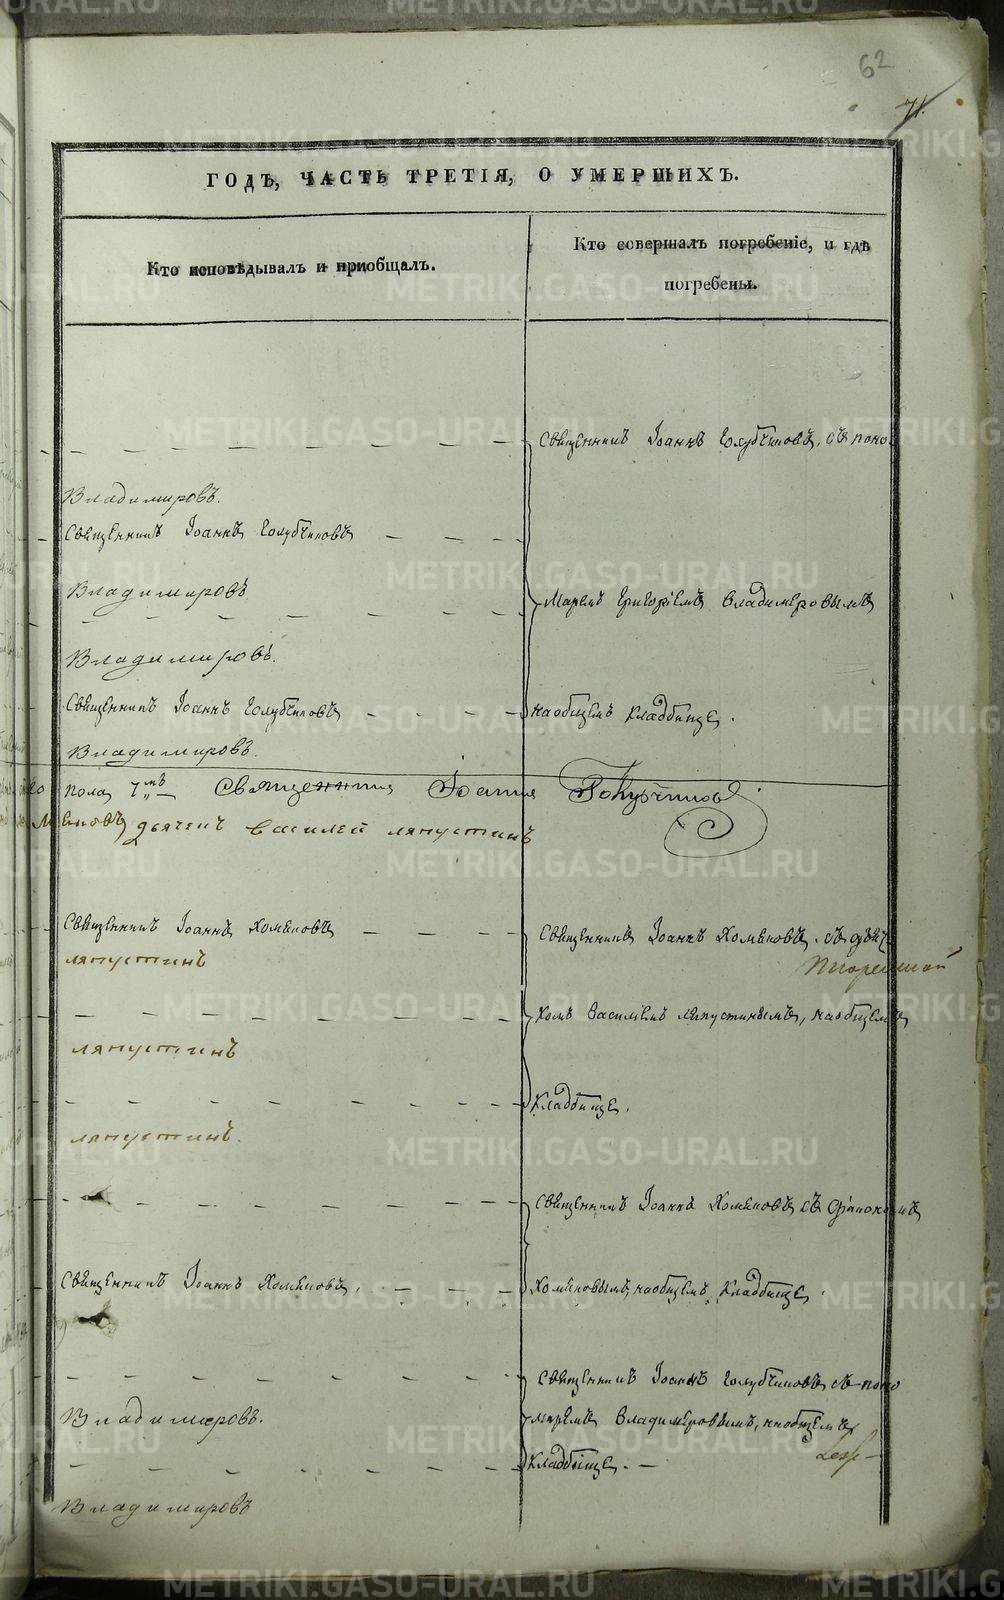 62
71.
ГОДЪ, ЧАСТЬ ТРЕТІЯ, О УМЕРШИХЪ.
Кто исповѣдывалъ и пріобщалъ.
Кто совершалъ погребеніе, и гдѣ
погребены.
Священникъ Іоаннъ Голубчиковъ, съ поно
Владимировъ.
Священникъ Іоаннъ Голубчиковъ
Владимировъ
маремъ Григоріемъ Владимеровымъ
Владимировъ.
Священникъ Іоаннъ Голубчиковъ
на общемъ кладбище.
Владимировъ.
пола 7мъ Священникъ Іоаннъ Голубчиковъ.
дьячекъ Василей Ляпустинъ
Священникъ Іоаннъ Хомяковъ
Священникъ Іоаннъ Хомяковъ. съ дьяч
Ляпустинъ
комъ Василіемъ Ляпустинымъ, на общемъ
Ляпустинъ
кладбище.
Ляпустинъ.
Священникъ Іоаннъ Хомяковъ съ діакономъ
Священникъ Іоаннъ Хомяковъ.
Хомяковымъ, на общемъ кладбище.
Священникъ Іоаннъ Голубчиковъ съ поно
Владимировъ.
маремъ Владимеровымъ, на общемъ
кладбище.
Владимировъ
METRIKI.GASO-URAL.RU